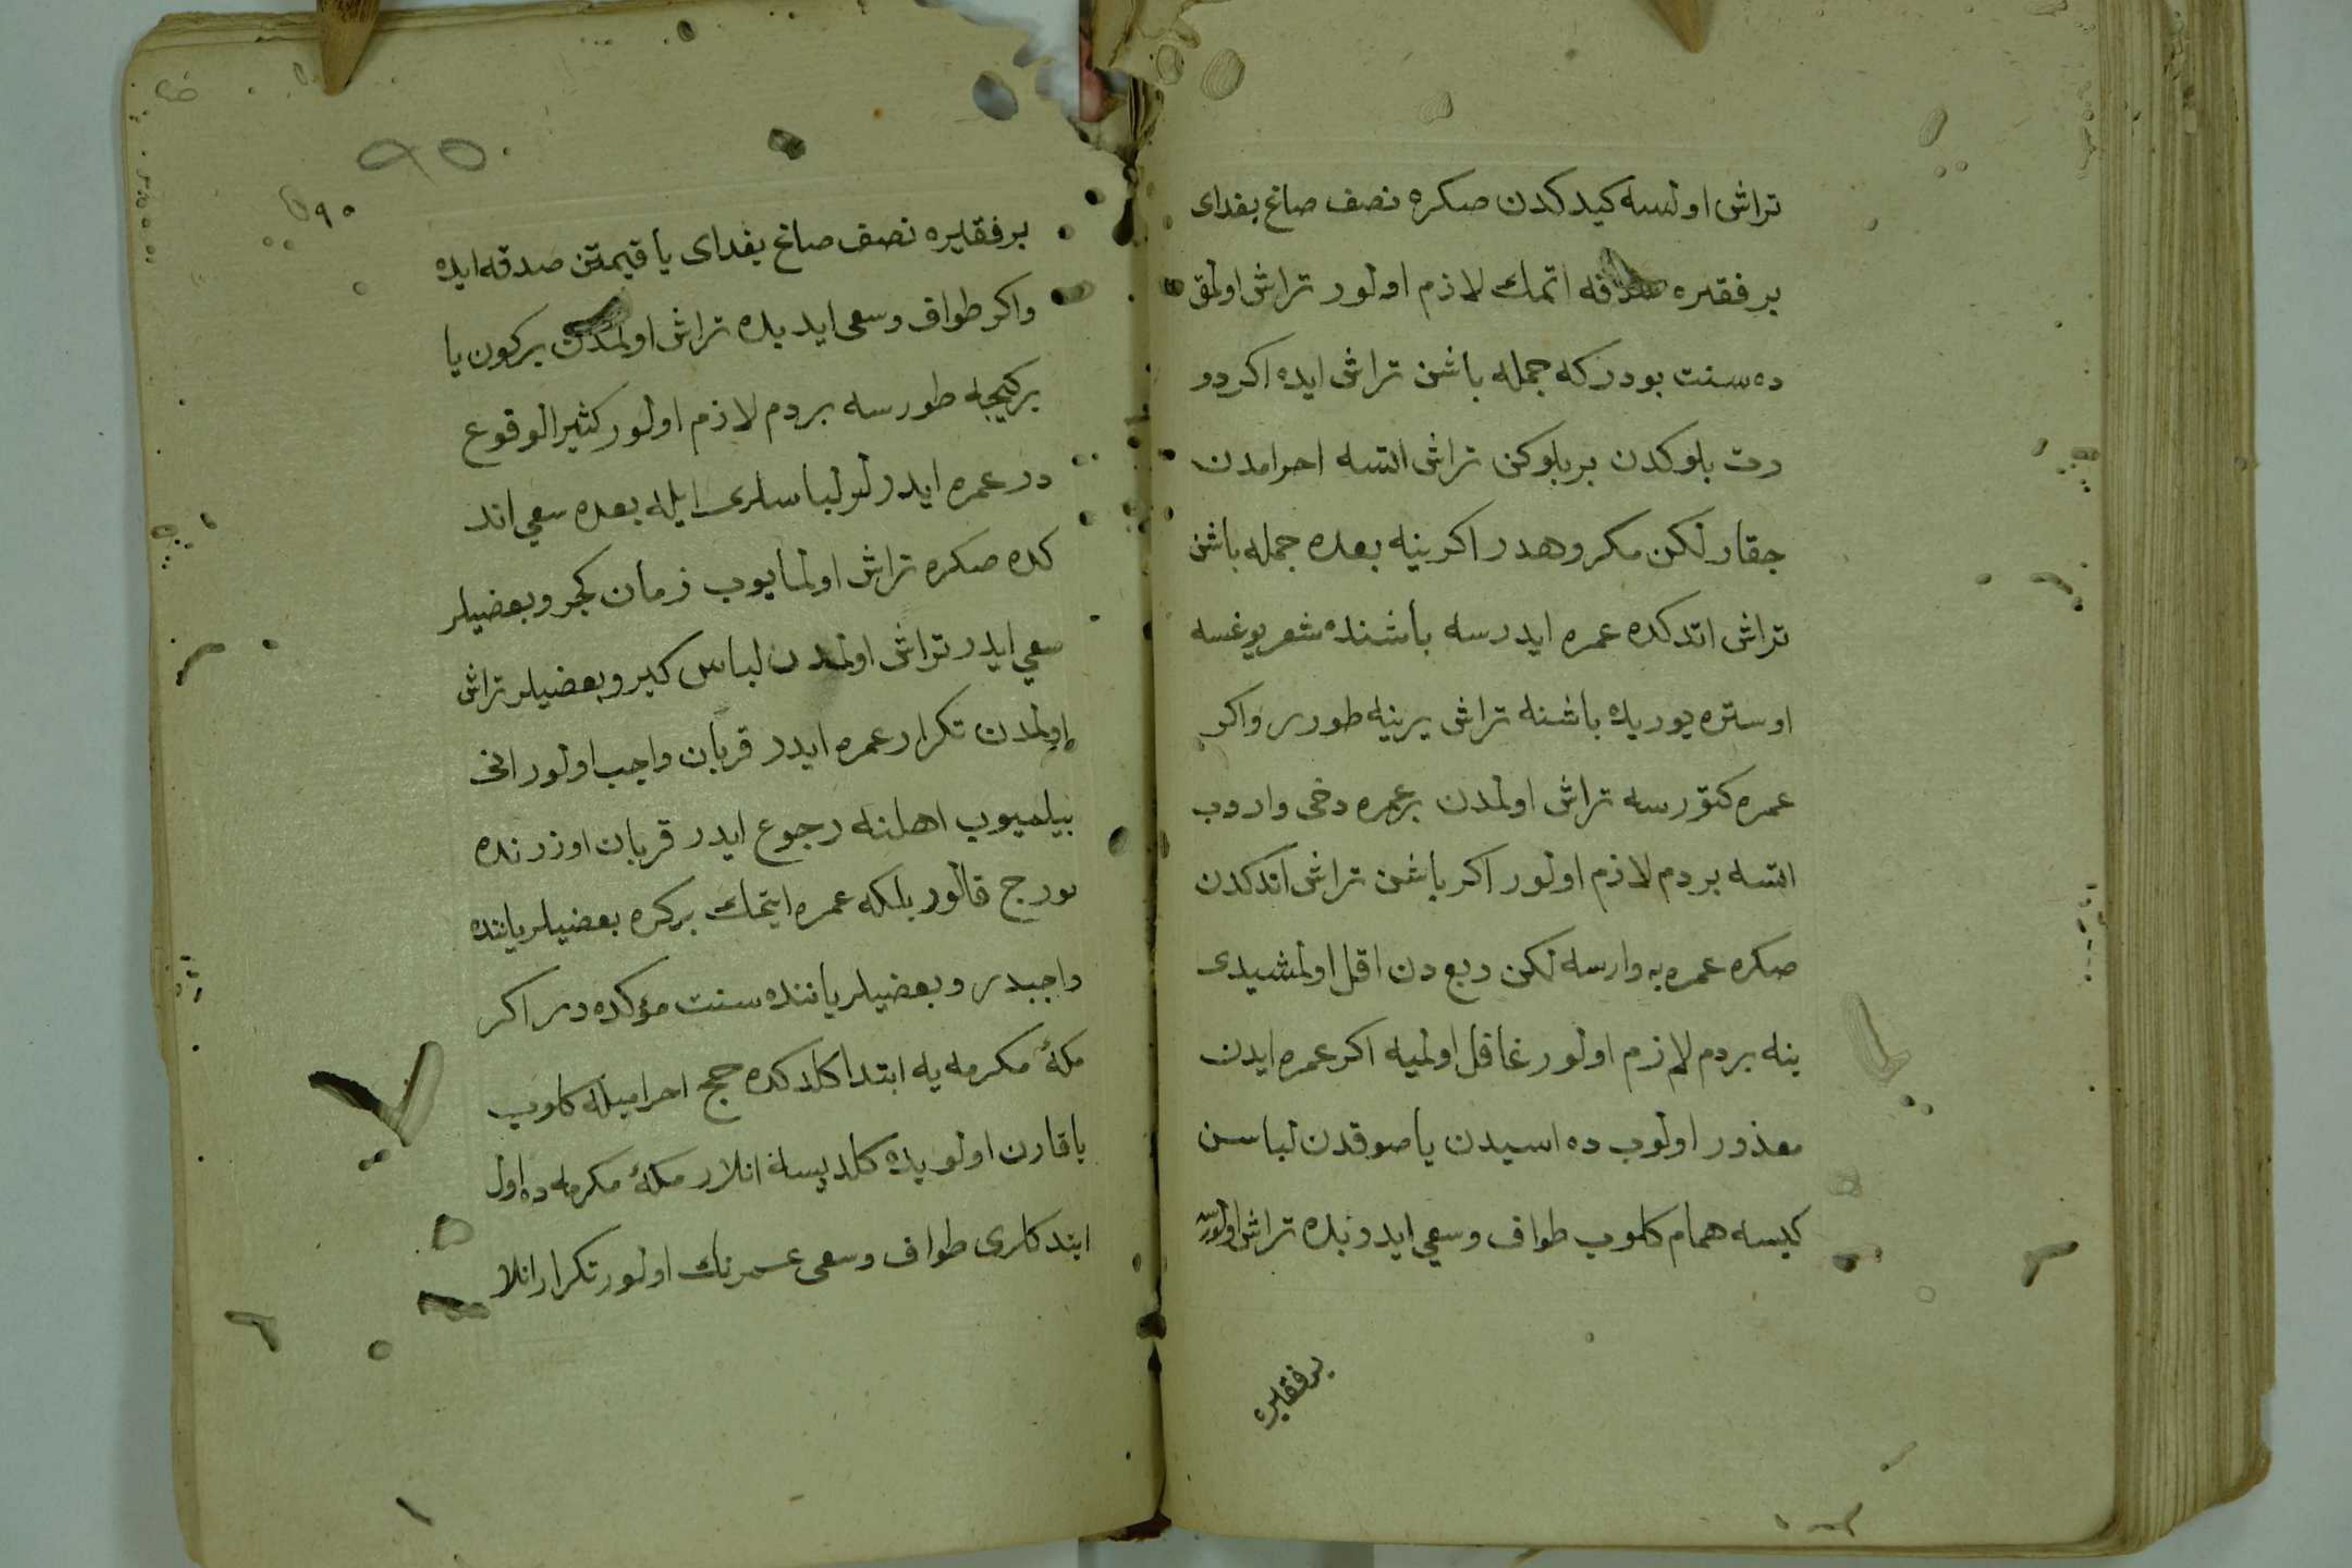 تراش اولسه كيدكدن صكره نصف صاغ بغداى
بر فقيره صدقه اتمك لازم اولور تراش اولمق
ده سنت بودركه جمله باشن تراش ايده اكر دو
رت بلوكدن بر بلوكن تراش اتسه احرامدن
جقار لكن مكروهدر اكر ينه بعده جمله باشن
تراش اتدكده عمره ايدرسه باشنده شعر يوغسه
اوستره يوريده باشنه تراش يرينه طورر واكر
عمره كتورسه تراش اولمدن بر عمره دخى واروب
اتسه بر دم لازم اولور اكر باشن تراش اتدكدن
صكره عمره يه وارسه لكن ربع دن اقل اولمشيدى
ينه بر دم لازم اولور غافل اولميه اكر عمره ايدن
معذور اولوب ده اسيدن يا صوقدن لباسن
كيسه همام كلوب طواف وسعي ايدوبده تراش اولورسه
بر فقيره
٩٥
٩٥
بر فقيره نصف صاغ بغداى يا قيمتن صدقه ايده
واكر طواف وسعى ايديده تراش اولمدن بر كون يا
بر كيجه طورسه بر دم لازم اولور كثير الوقوع
در عمره ايدرلر لباسلرى ايله بعده سعي اتد
كده صكره تراش اولمايوب زمان كجر وبعضيلر
سعي ايدر تراش اولمدن لباس كير وبعضيلر تراش
اولمدن تكرار عمره ايدر قربان واجب اولور انى
بيلميوب اهلنه رجوع ايدر قربان اوزرنده
بورج قالور بلكه عمره ايتمك بر كره بعضيلر ياننده
واجبدر وبعضيلر ياننده سنت مؤكده در اكر
مكهٔ مكرمه يه ابتدا كلدكده حج احراميله كلوب
يا قارن اولويده كلديسه انلار مكهٔ مكرمه ده اول
ايتدكلرى طواف وسعى عمرنك اولور تكرار انلا